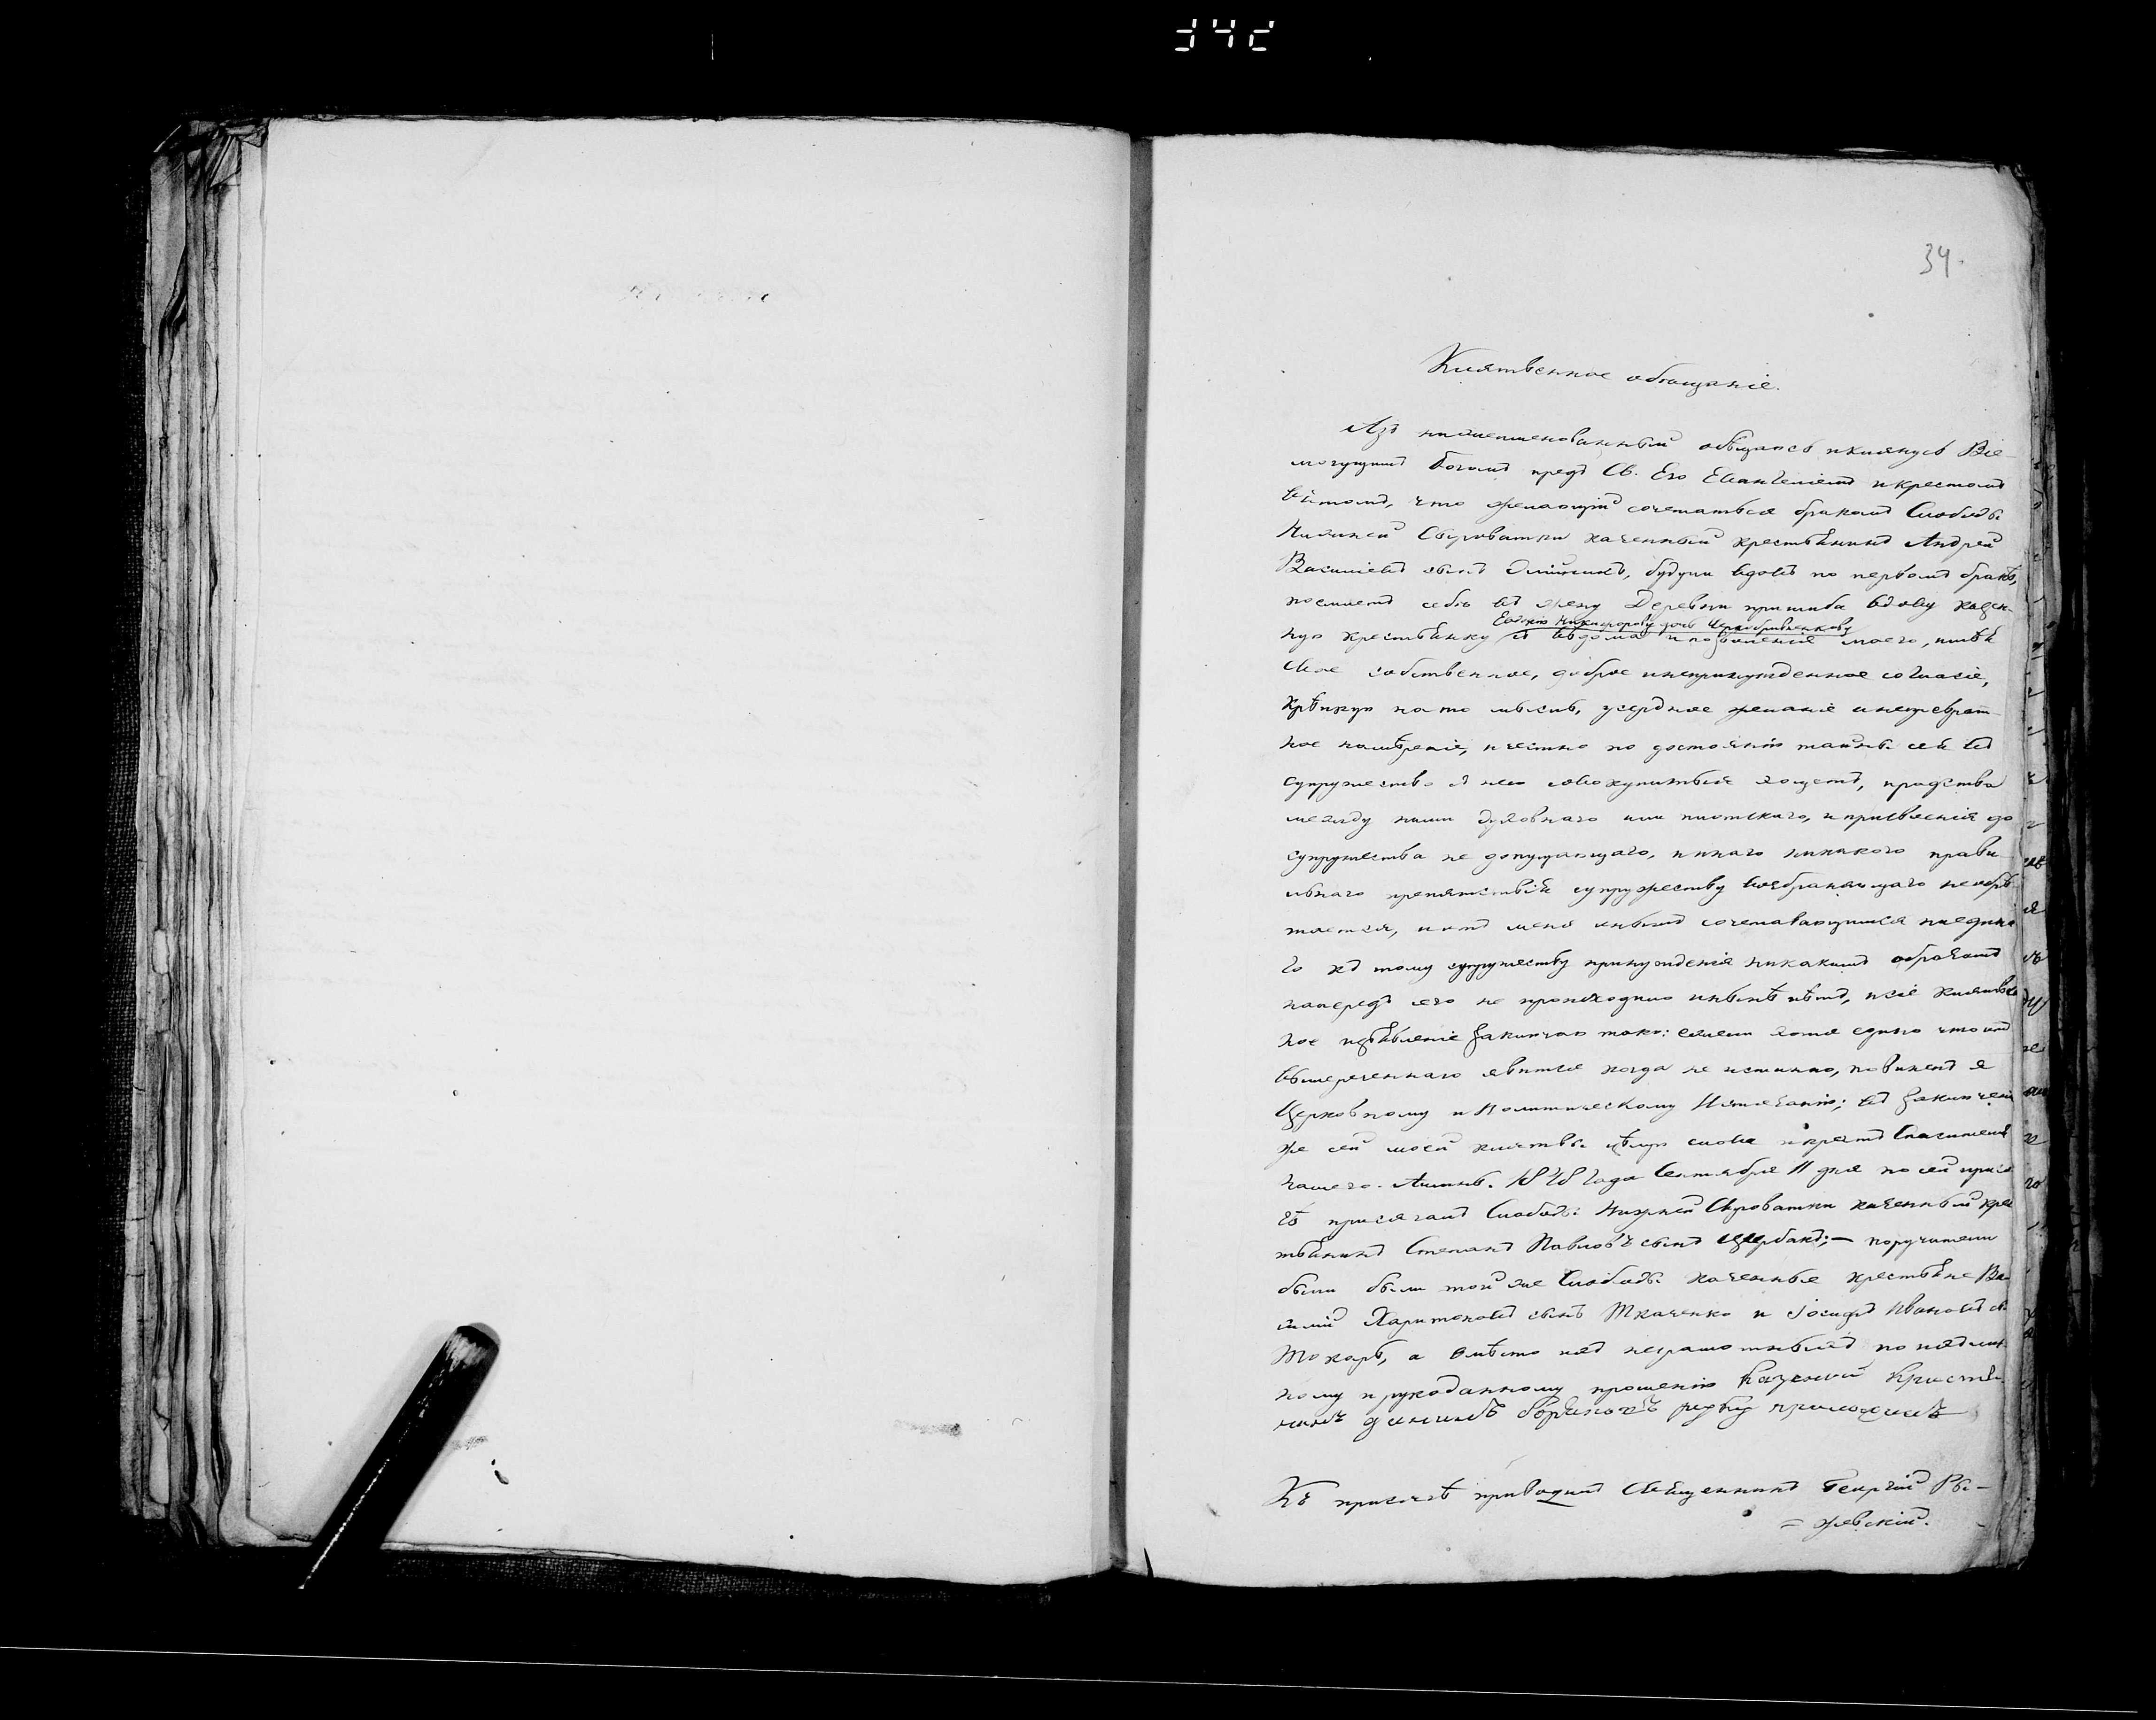 34.
Клятвенное обѣщаніе.
Азъ нижеименованный обѣщаюсь и клянусь Все-
могущимъ Богомъ предъ Св. Его Евангеліемъ и крестомъ
въ томъ, что желающій сочетаться бракомъ Слободы
Нижней Сыроватки казенный крестьянинъ Андрей
Василіевъ сынъ будучи вдовъ по первомъ бракѣ,
поемлетъ себѣ въ жену Деревни пришиба вдову казен-
Евдокію Никифорову дочь Чернобривенкову
ную крестьянку съ вѣдома и позволенія моего, имѣя
свое собственное, доброе и непринужденное согласіе,
крѣпкую на то мысль, усердное желаніе и непреврат-
ное намѣреніе, и честно по достоянію тайны сея въ
супружество съ нею совокупиться хощетъ, сродства
между ними духовнаго или плотскаго, и присвоенія до
супружества не допущающаго, и инаго никакого прави-
льнаго препятствія супружеству возбраняющаго не обрѣ-
тается, и отъ мене и инымъ сочетавающимся ниедина-
го къ тому супружеству принужденія никакимъ образомъ
напередъ сего не происходило и нынѣ нѣтъ, и сіе клятвен-
ное изъявленіе заключаю тако: ежели хотя едино что отъ
вышереченнаго явится когда не истинно, повиненъ я
Церковному и политическому Истязанію; въ заключеніе
же сей моей клятвы цѣлую слова и крестъ Спасителя
нашего. Аминь. 1828 года Сентября 11 дня по сей прися-
гѣ присягалъ Слободы Нижней Сыроватки казенный крес
тьянинъ Степанъ Павловъ сынъ Щербакъ; — поручители
были были той же Слободы казенные крестьяне Ва-
силій Харитоновъ сынъ Ткаченко и Іосифъ Ивановъ сы
Токарь, а вмѣсто ихъ неграмотныхъ по ихъ лич-
ному и рукоданному прошенію казеной крестья-
нинъ руку приложилъ
Къ присягѣ приводилъ Священникъ Георгій Ры-
= жевскій.